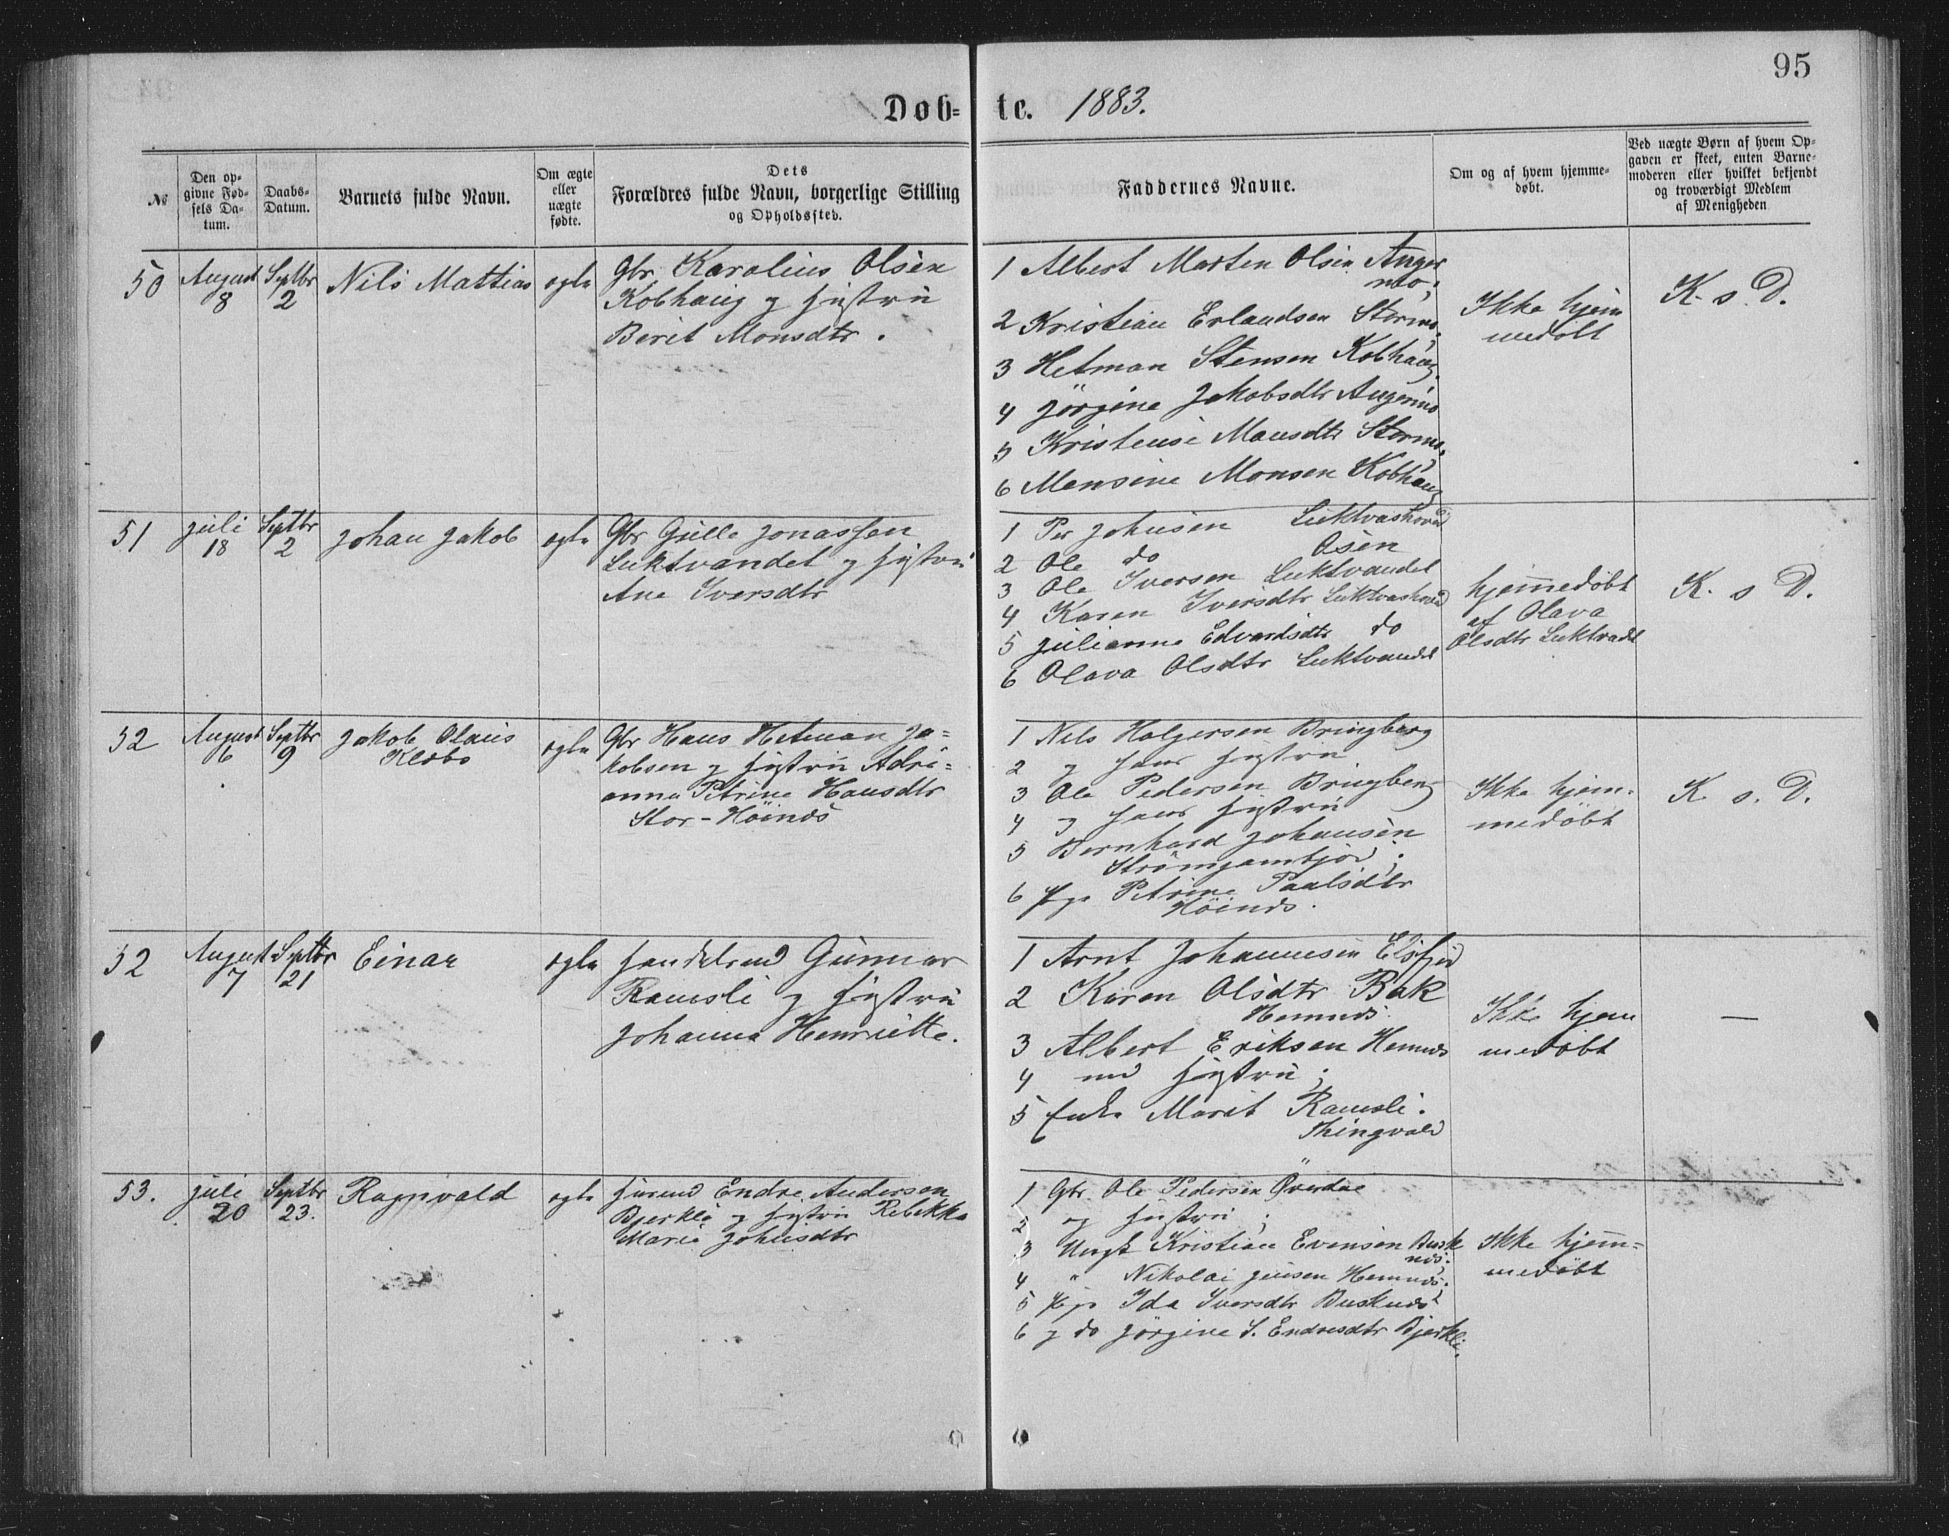 95
Døb-te. 1883.
No
Den opgivne Fødsels Datum.
Daabs-Datum.
Barnets fulde Navn.
Om ægte eller uægte fødte.
Dets Forældres fulde Navn, borgerlige Stilling og Opholdssted.
Faddernes Navne.
Om og af hvem hjemmedøbt.
Ved uægte Børn af hvem Opgaven er skeet, enten Barnemoderen eller hvilket bekjendt og troværdigt Medlem af Menigheden
50
August 8
Septbr 2
Nils Mattias
ægte
Gbr Karolius Olsen
Kobhaug og Hustru
Berit Monsdtr.
1 Albert Morten Olsen Anger
mo;
2 Kristian Erlandsen Stormo;
3 Hetman Stensen Kobhaug.
4 Jörgine Jakobsdtr Angermo
5 Kristense Mansdtr Stormo,
6 Monsine Monsen Kobhaug
Ikke hjem
medøbt
K. s. D.
51
Juli 18
Septbr 2
Johan Jakob
ægte
Gbr Gulle Jonassen
Luktvandet og Hustru
Ane Iversdtr
1 Per Johnsen
2 Ole do Osen
3 Ole Iversen Luktvandet
4 Karen Iversdtr
5 Julianne Edvardsdtr do
6 Olava Olsdtr Luktvandet
hjemmedøbt
af Olava
Olsdtr Luktvadt
K. s D.
52
August 6
Septbr 9
Jakob Olaus
Klobo
ægte
Gbr Hans Hetman Ja-
kobsen og Hustru Adri-
anna Petrine Hansdtr
Stor-Höinds
1 Nils Holgersen Bringberg
2 og hans Hustru
3 Ole Pedersen Bringberg
4 og hans Hustru
5 Bernhard Johansen
6 Pge Petrine Paalsdtr
Höinds.
Ikke hjem-
medøbt
K. s. D.
52
August 7
Septbr 21
Einar
ægte
Handelsmd Gunnar
Ramsli og Hustru
Johanna Henriette.
1 Arnt Johannesen Elsfjd
2 Karen Olsdtr Bak
Hemnds.
3 Albert Eriksen Hemnds
4 md Hustru;
5 Enke Marit Ramsli.
Thingvold
Ikke hjem
medøbt
—
53.
Juli 20
Septbr 23.
Ragnvald
ægte
Husmd Endre Andersen
Bjerkli og Hustru Rebekka
Maria Johnsdtr
1 Gbr. Ole Pedersen Överdae
2 og Hustru;
3 Ungk Kristian Evensen Busk
nds;
4 " Nikolai Jensen Hemnds.
5 Pge Ida Iversdtr Busknds
6 og do Jörgine S. Endresdtr Bjerkli.
Ikke hjem-
medøbt